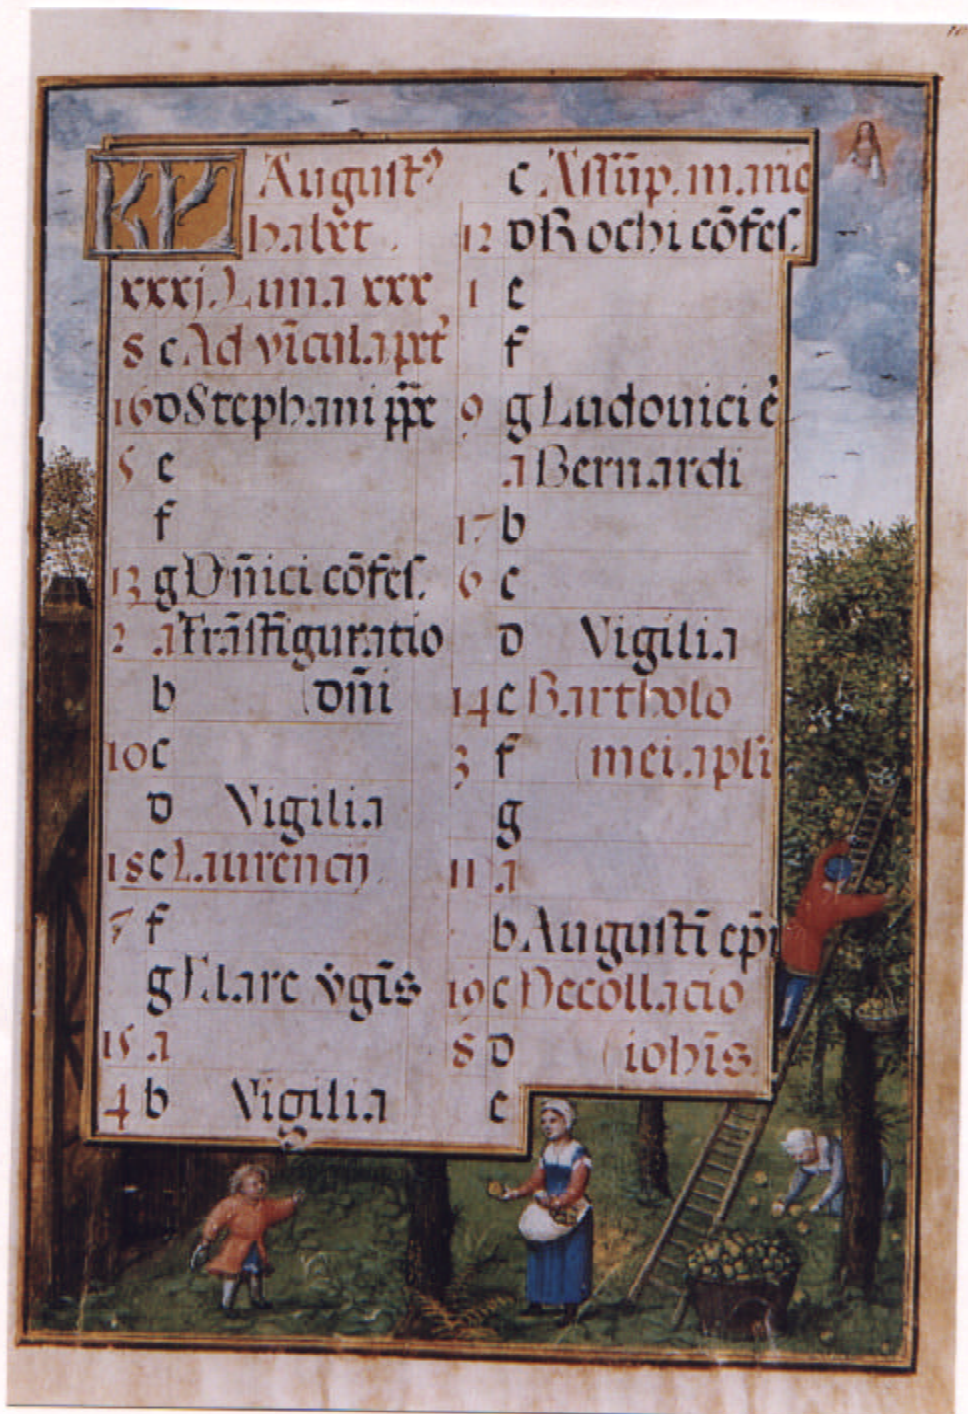 KL August⁹
habet
xxxj. Luna xxx
8 c Ad vīcula pet'
16 d Stephani pp̄e
5 e
f
13 g Dn̄ici cōfes.
2 a Trāsfiguratio
b (dn̄i
10 c
d Vigilia
18 e Laurencij
7 f
g Clare v̊gīs
15 a
4 b Vigilia
c Assūp. m. arie
12 d Rochi cōfes.
1 e
f
9 g Ludouici ē
a Bernardi
17 b
6 c
d Vigilia
14 e Bartholo
3 f (mei apl̄i
g
11 a
b Augustī ep̄i
19 c Decollacio
8 d (ioh̄is
e